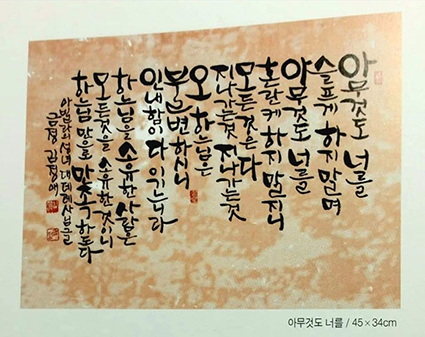 아무것도 너를
슬프게 하지 말며
아무것도 너를
혼란케 하지 말지니
모든것은 다
지나가는것 지나가는것
오 하느님은
불변하시니
인내함이 다
하느님을 소유한 사람은
모든것을 소유한 것이니
하느님 만으로 만족하도다
아빌라의 성녀 대데레사
김경애
아무것도 너를 / 45×34cm